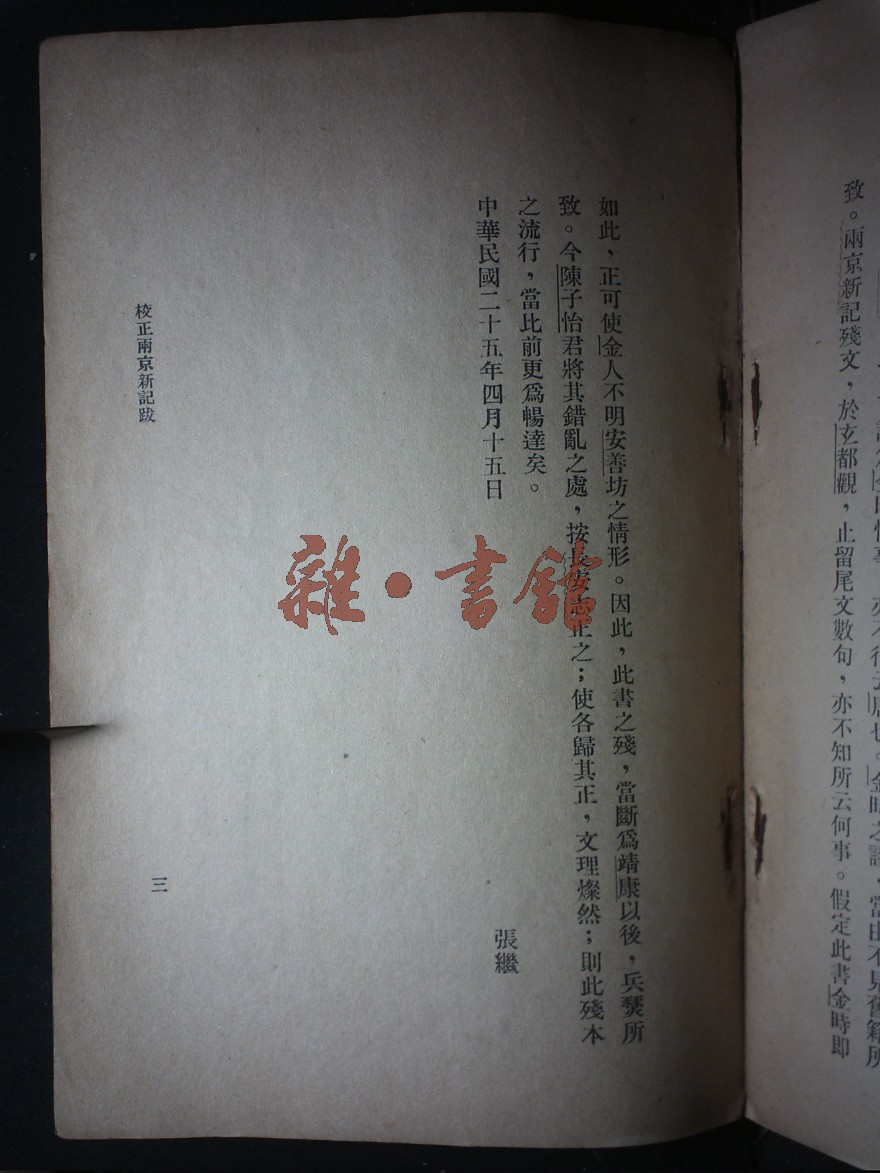 亦不得云唐也。金時之誌,當由不見舊籍所
致。兩京新記殘文,於玄都觀,止留尾文數句,亦不知所云何事。假定此書金時即
如此,正可使金人不明安善坊之情形。因此,此書之殘,當斷爲靖康以後,兵燹所
致。今陳子怡君將其錯亂之處,按長安志正之;使各歸其正,文理燦然;則此殘本
之流行,當比前更爲暢達矣。
中華民國二十五年四月十五日
張繼
校正兩京新記跋
三
雜·書館